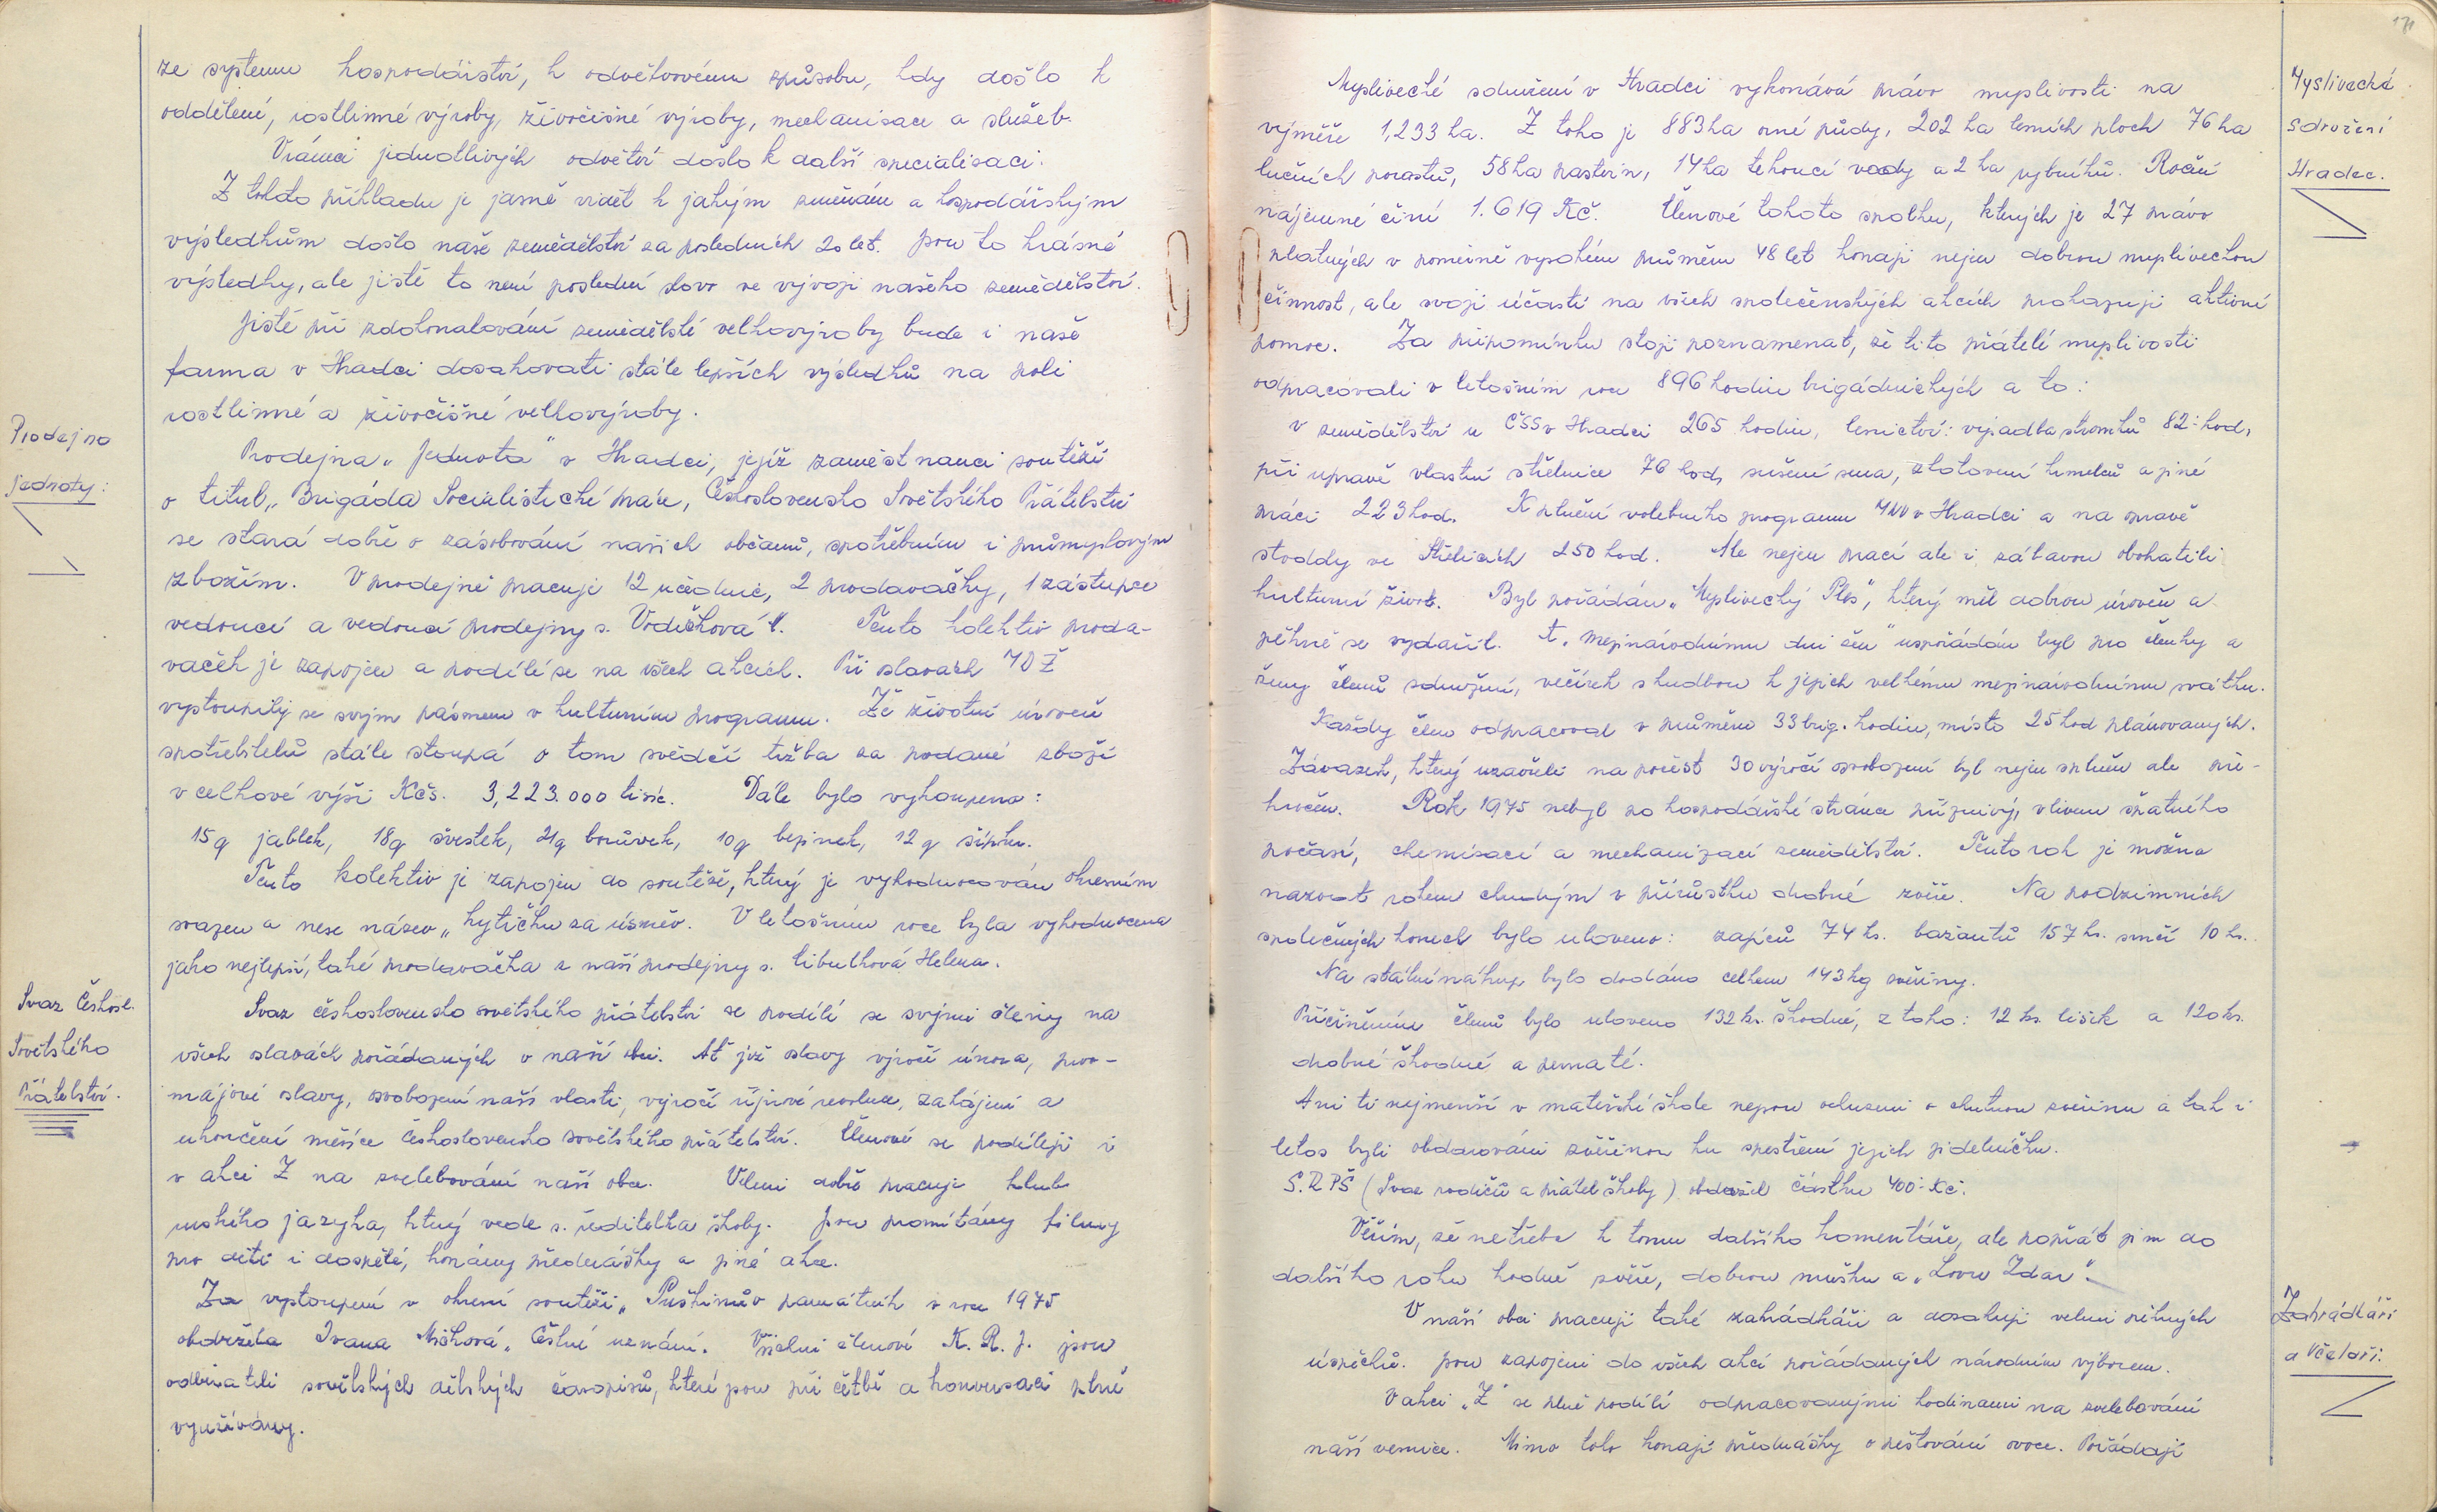 ze systemu hospodářství, k odvětvovému způsobu, kdy došlo k
oddělení, rostlinné výroby, živočišné výroby, mechanisace a služeb.
Vrámci jednotlivých odvětví došlo k další specialisaci.
Z tohoto příkladu je jasně vidět k jakým změnám a hospodářským
výsledkům došlo naše zemědělství za posledních 20 let. Jsou to krásné
výsledky, ale jistě to není poslední slovo ve vývoji našeho zemědělství.
Jistě při zdokonalování zemědělské velkovýroby bude i naše
farma v Hradci dosahovati stále lepších výsledků na poli
rostlinné a živočišné velkovýroby.
Prodejna
Jednoty:
Prodejna „Jednota" v Hradci, jejíž zaměstnanci soutěží
o titul „Brigáda Socialistické práce, Československo Sovětského Přátelství
se stará dobře o zásobování našich občanů, spotřebním i průmyslovým
zbožím. V prodejně pracuje 12 učednic, 2 prodavačky, 1 zástupce
vedoucí a vedoucí prodejny s. Vodičková. Tento kolektiv proda-
vaček je zapojen a podílí se na všech akcích. Při oslavách MDŽ
vystoupily se svým pásmem v kulturním programu. Že životní úroveň
spotřebitelů stále stoupá o tom svědčí tržba za prodané zboží
v celkové výši Kčs. 3,223.000 tisíc. Dále bylo vykoupeno:
15q jablek, 18q švestek, 21q borůvek, 10q bezinek, 12q šípku.
Tento kolektiv je zapojen do soutěže, který je vyhodnocován okresním
svazem a nese název „kytičku za úsměv. V letošním roce byla vyhodnocena
jako nejlepší, také prodavačka z naší prodejny s. Cibulková Helena.
Svaz Českosl.
Sovětského
Přátelství.
Svaz československo sovětského přátelství se podílí se svými členy na
všech oslavách pořádaných v naší obci. Ať již oslavy výročí února, prvo-
májové oslavy, osvobození naší vlasti, výročí říjnové revoluce, zahájení a
ukončení měsíce československo sovětského přátelství. Členové se podílejí i
v akci Z na zvelebování naší obce. Velmi dobře pracuje klub
ruského jazyka, který vede s. ředitelka školy. Jsou promítány filmy
pro děti i dospělé, konány přednášky a jiné akce.
Za vystoupení v okresní soutěži „Puškinův památník v roce 1975
obdržela Ivana Míčková „Čestné uznání. Všichni členové K. R. J. jsou
odběrateli sovětských dětských časopisů, které jsou při četbě a konversaci plně
využívány.
171
Myslivecké
sdružení
Hradec.
Myslivecké sdružení v Hradci vykonává právo myslivosti na
výměře 1,233 ha. Z toho je 883 ha orné půdy, 202 ha lesních ploch 76 ha
lučních porostů, 58 ha pastvin, 14 ha tekoucí vody a 2 ha rybníků. Roční
nájemné činí 1.619 Kč. Členové tohoto spolku, kterých je 27 právo
platných v poměrně vysokém průměru 48 let konají nejen dobrou mysliveckou
činnost, ale svoji účastí na všech společenských akcích prokazují aktivní
pomoc. Za připomínku stojí poznamenat, že tito přátelé myslivosti
odpracovali v letošním roce 896 hodin brigádnických a to:
v zemědělství u ČSS v Hradci 265 hodin, lesnictví: výsadba stromků 82 hod,
při úpravě vlastní střelnice 76 hod, sušení sena, zhotovení krmelců a jiné
práci 223 hod. K plnění volebního programu MNV v Hradci a na opravě
stodoly ve Střelicích 250 hod. Ale nejen prací ale i zábavou obohatili
kulturní život. Byl pořádán „Myslivecký Ples", který měl dobrou úroveň a
pěkně se vydařil. K „Mezinárodnímu dni žen" uspořádán byl pro členky a
ženy členů sdružení, večírek s hudbou k jejich velkému mezinárodnímu svátku.
Každý člen odpracoval v průměru 33 brig. hodin, místo 25 hod plánovaných.
Závazek, který uzavřeli na počest 30 výročí osvobození byl nejen splněn ale pře-
kročen. Rok 1975 nebyl po hospodářské stránce příznivý, vlivem špatného
počasí, chemisací a mechanizací zemědělství. Tento rok je možno
nazvat rokem chudým v přírůstku drobné zvěře. Na podzimních
společných honech bylo uloveno: zajíců 74 ks. bažantů 157 ks. srnčí 10 ks.
Na státní nákup bylo dodáno celkem 143 kg zvěřiny.
Přičiněním členů bylo uloveno 132 ks. škodné, z toho: 12 ks. lišek a 120 ks.
drobné škodné a pernaté.
Ani ti nejmenší v mateřské škole nejsou ochuzeni o chutnou zvěřinu a tak i
letos byli obdarováni zvěřinou ku zpestření jejich jídelníčku.
S.R.PŠ (Svaz rodičů a přátel školy) obdržel částku 400.- Kč.
Věřím, že netřeba k tomu dalšího komentáře, ale popřát jim do
dalšího roku hodně zvěře, dobrou mušku a „Lovu Zdar".
Zahrádkáři
a Včelaři.
V naší obci pracují také zahrádkáři a dosahují velmi pěkných
úspěchů. Jsou zapojeni do všech akcí pořádaných národním výborem.
V akci „Z" se plně podílí odpracovanými hodinami na zvelebování
naší vesnice. Mimo toho konají přednášky o pěstování ovoce. Pořádají